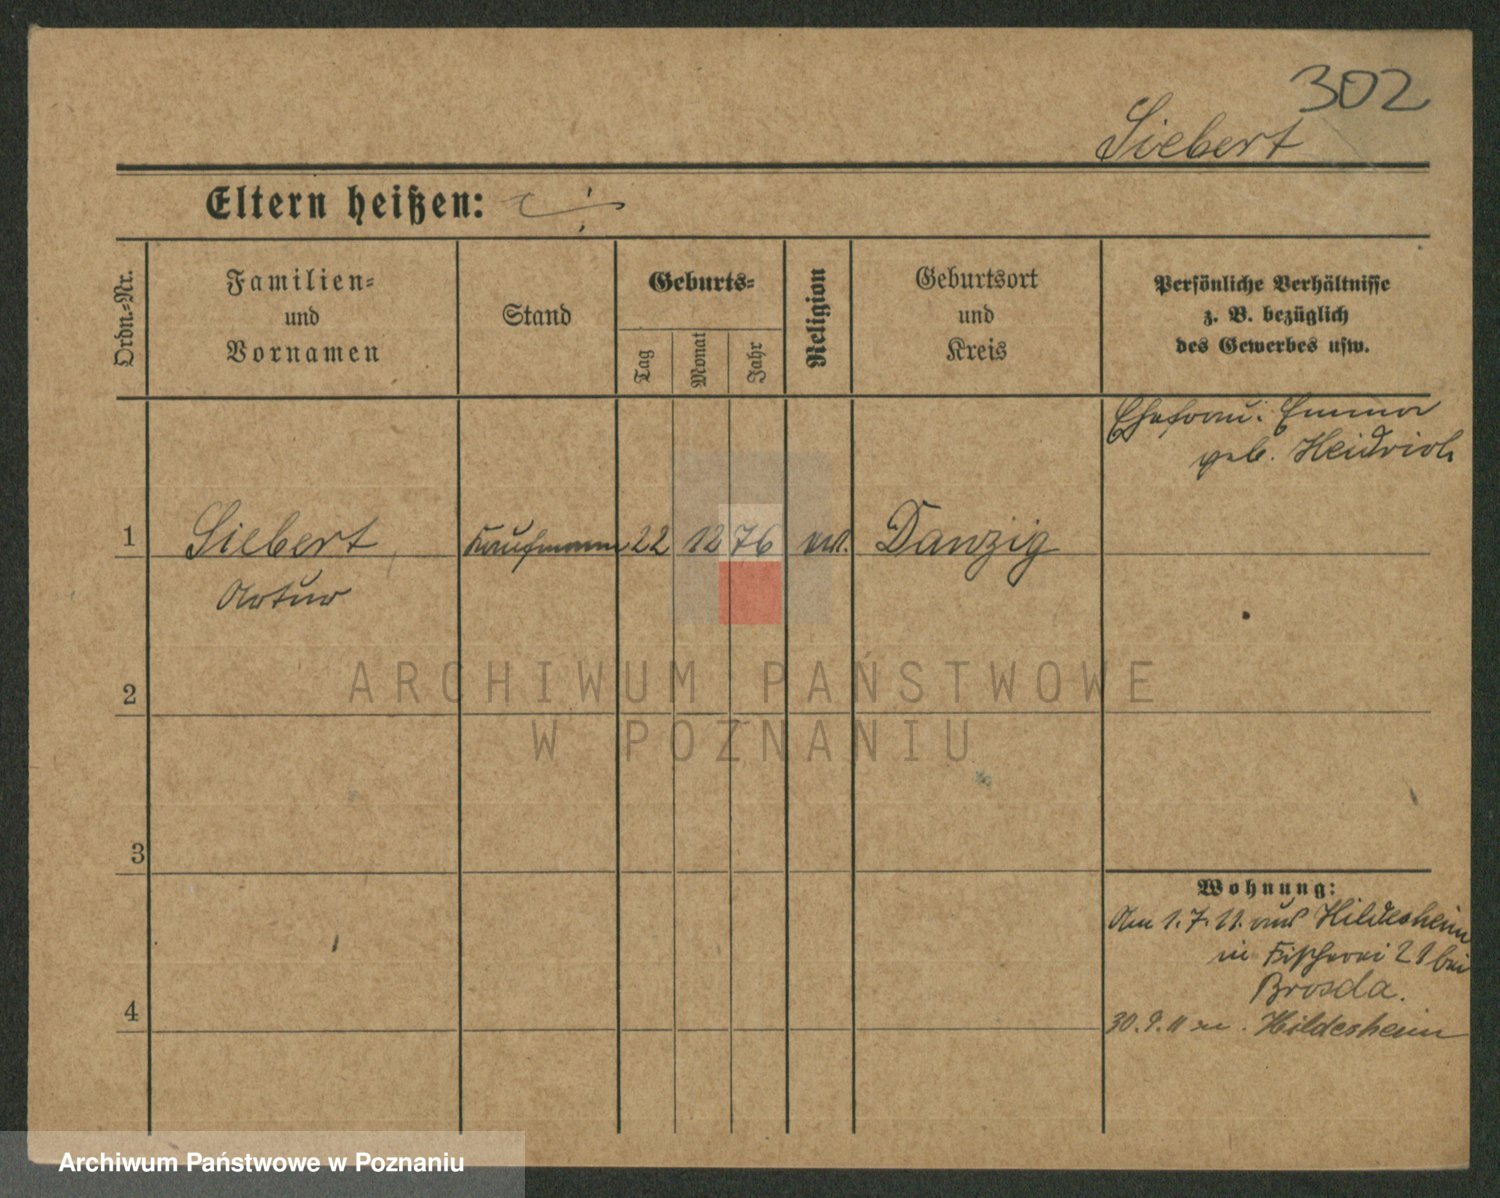 302
Siebert
Eltern heißen:
Ordn.-Nr.
Familien-
und
Vornamen
Stand
Geburts-
Tag
Monat
Jahr
Religion
Geburtsort
und
Kreis
Persönliche Verhältnisse
z. B. bezüglich
des Gewerbes usw.
Ehefrau: Emma
geb. Heidrich
1 Siebert Kaufmann 22 12 76 Danzig
Artur
2
3
4
Wohnung:
Am 1.7.11. aus Hildesheim
in Fischerei 21 bei
Brosda.
30.9.11 Hildesheim
ARCHIWUM PAŃSTWOWE
W POZNANIU
Archiwum Państwowe w Poznaniu